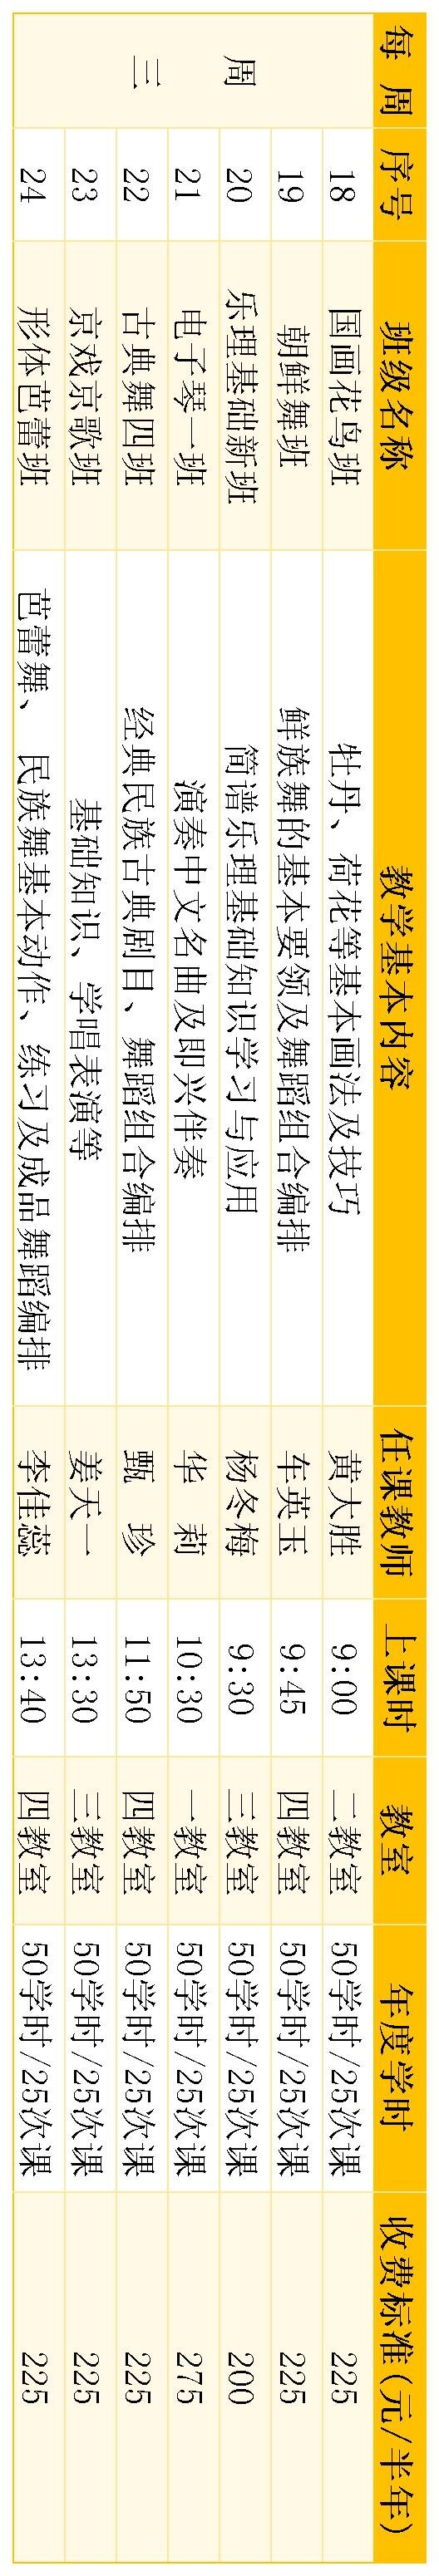 每 周 序号 班级名称 教学基本内容 任课教师 上课时 教室 年度学时 收费标准(元/半年)
周三
18 国画花鸟班 牡丹、荷花等基本画法及技巧 黄大胜 9:00 二教室 50学时/25次课 225
19 朝鲜舞班 鲜族舞的基本要领及舞蹈组合编排 车英玉 9:45 四教室 50学时/25次课 225
20 乐理基础新班 简谱乐理基础知识学习与应用 杨冬梅 9:30 三教室 50学时/25次课 200
21 电子琴一班 演奏中文名曲及即兴伴奏 华 莉 10:30 一教室 50学时/25次课 275
22 古典舞四班 经典民族古典剧目、舞蹈组合编排 甄 珍 11:50 四教室 50学时/25次课 225
23 京戏京歌班 基础知识、学唱表演等 姜天一 13:30 三教室 50学时/25次课 225
24 形体芭蕾班 芭蕾舞、民族舞基本动作、练习及成品舞蹈编排 李佳蕊 13:40 四教室 50学时/25次课 225